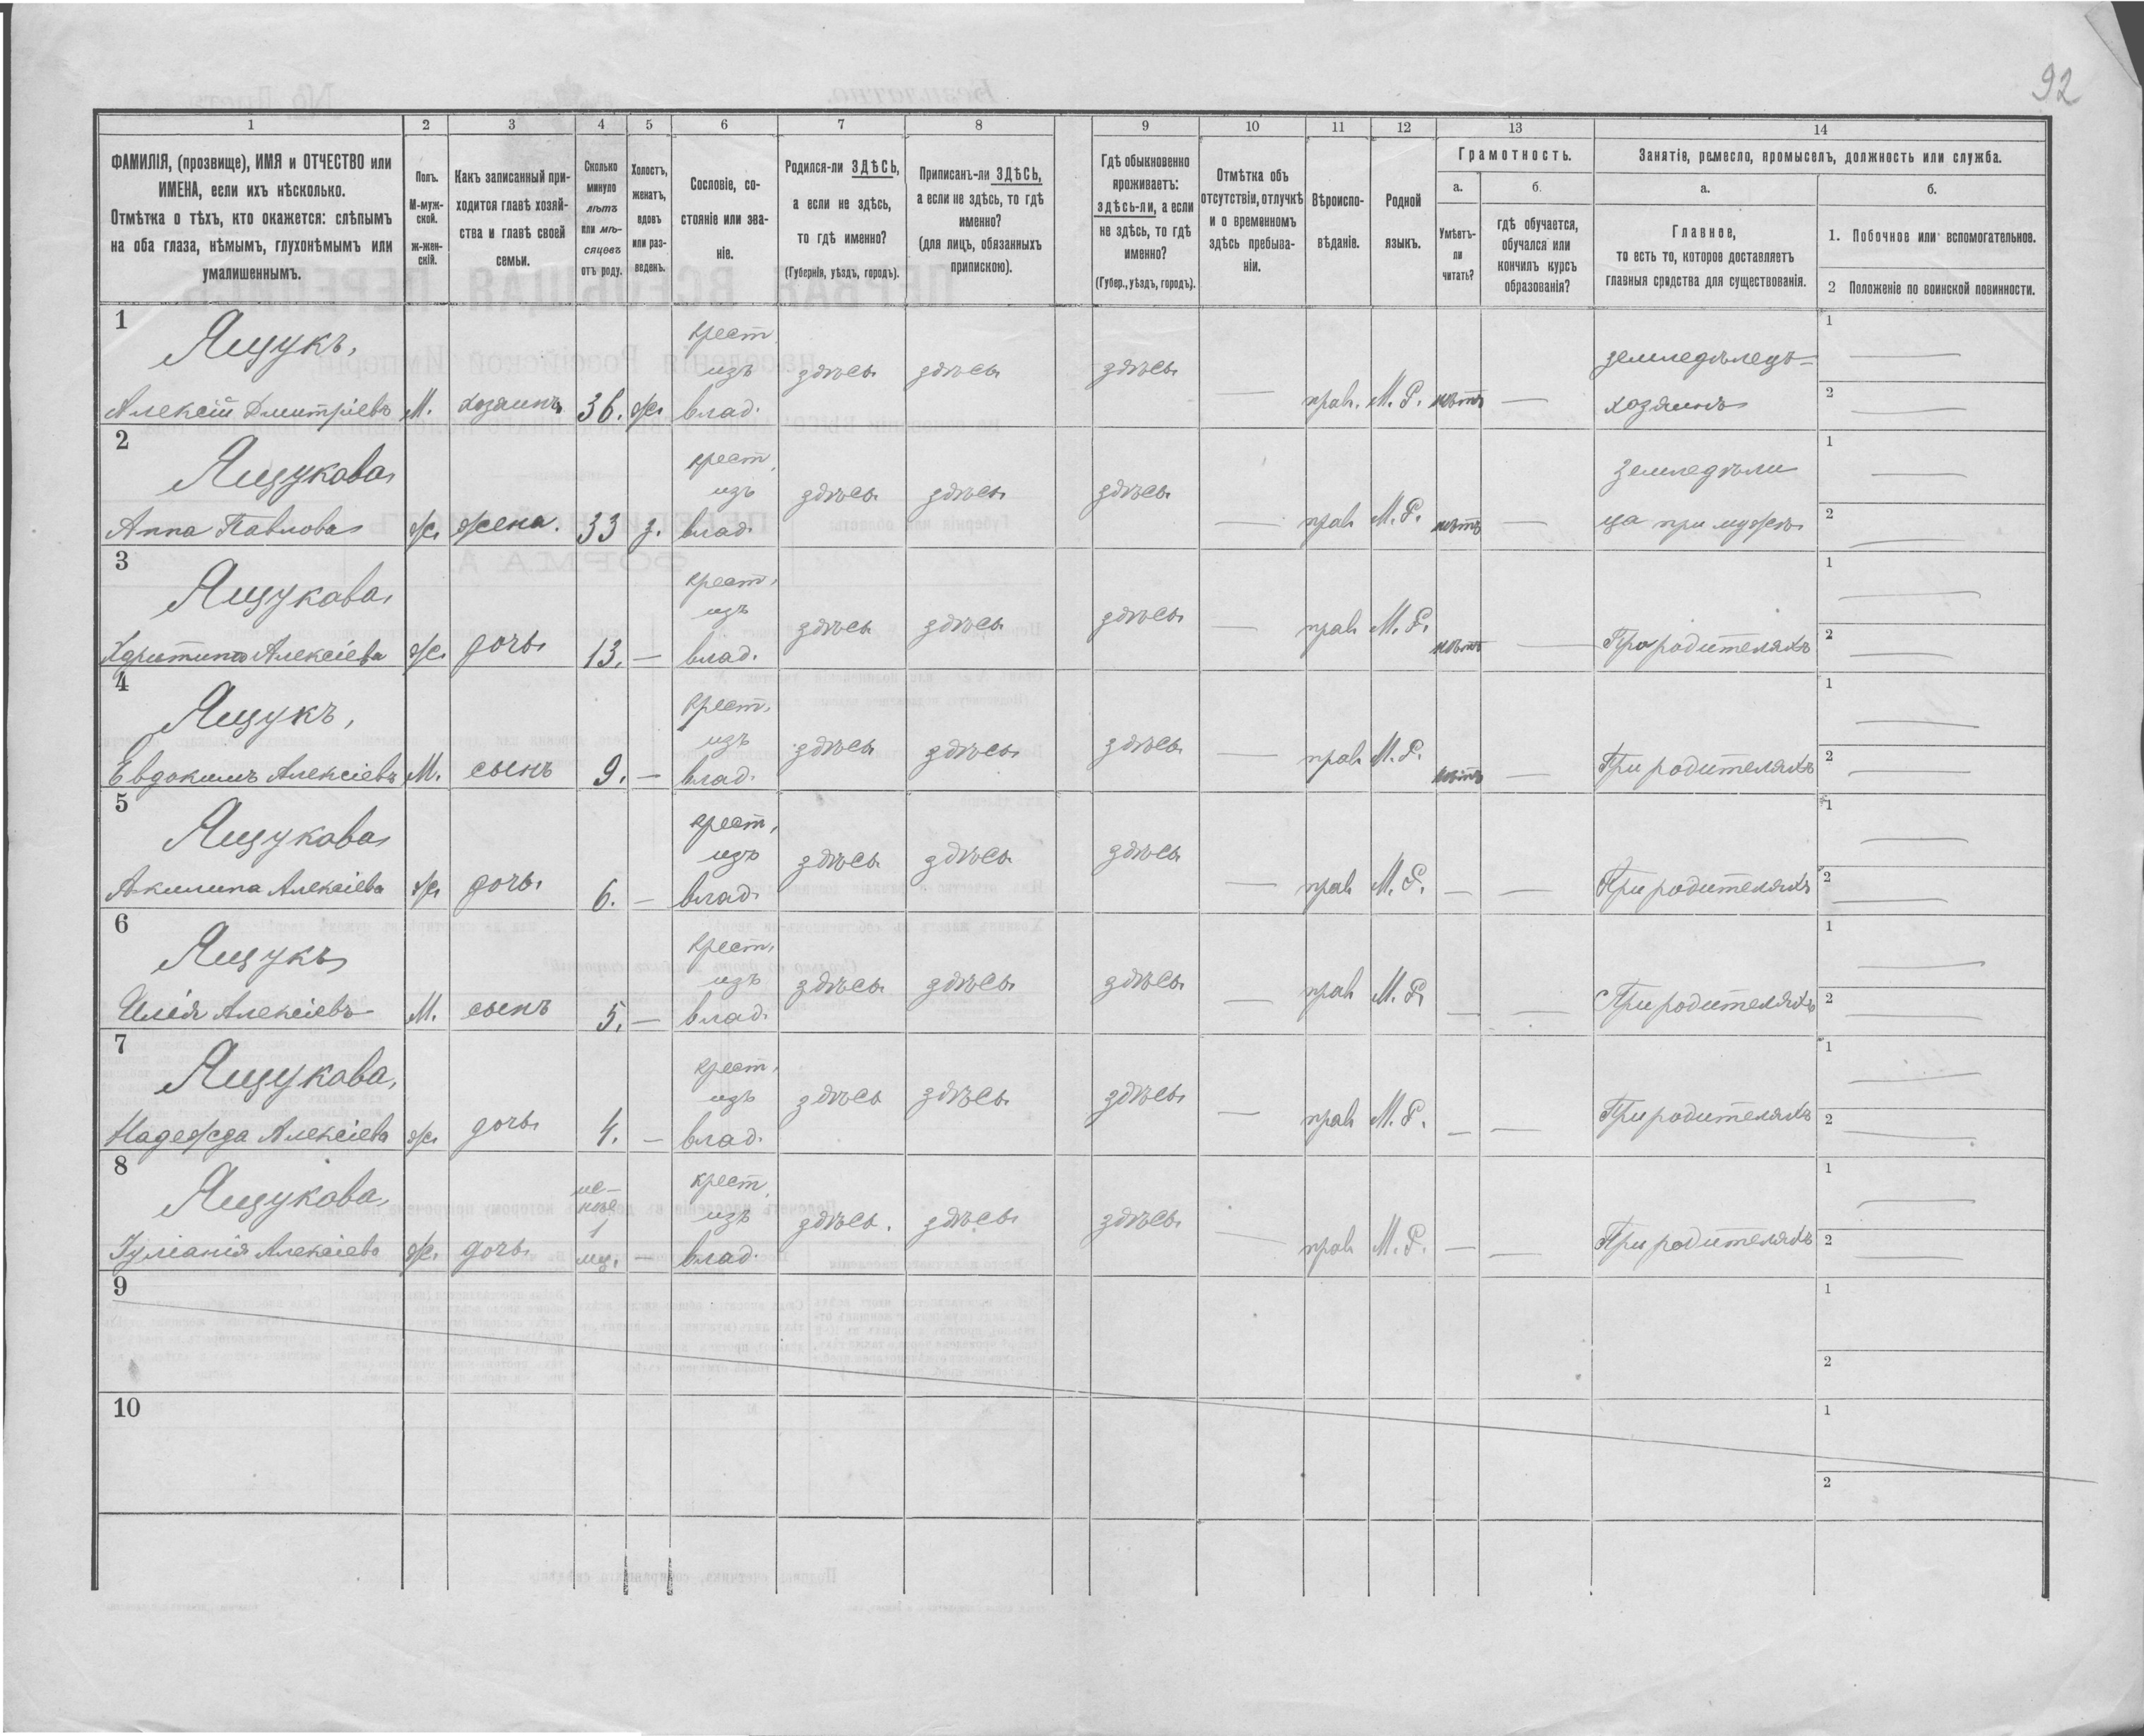 92
1 2 3 4 5 6 7 8 9 10 11 12 13 14
ФАМИЛІЯ, (прозвище), ИМЯ и ОТЧЕСТВО или
ИМЕНА, если ихъ нѣсколько.
Отмѣтка о тѣхъ, кто окажется: слѣпымъ
на оба глаза, нѣмымъ, глухонѣмымъ или
умалишеннымъ.
Полъ.
М-муж-
ской.
ж-жен-
скій.
Какъ записанный при-
ходится главѣ хозяй-
ства и главѣ своей
семьи.
Сколько
минуло
лѣтъ
или мѣ-
сяцевъ
отъ роду.
Холостъ,
женатъ,
вдовъ
или раз-
веденъ.
Сословіе, со-
стояніе или зва-
ніе.
Родился-ли ЗДѢСЬ,
а если не здѣсь,
то гдѣ именно?
(Губернія, уѣздъ, городъ).
Приписанъ-ли ЗДѢСЬ,
а если не здѣсь, то гдѣ
именно?
(для лицъ, обязанныхъ
припискою).
Гдѣ обыкновенно
проживаетъ:
здѣсь-ли, а если
не здѣсь, то гдѣ
именно?
(Губер., уѣздъ, городъ).
Отмѣтка объ
отсутствіи, отлучкѣ
и о временномъ
здѣсь пребыва-
ніи.
Вѣроиспо-
вѣданіе.
Родной
языкъ.
Грамотность.
а.
Умѣетъ-
ли
читать?
б.
гдѣ обучается,
обучался или
кончилъ курсъ
образованія?
Занятіе, ремесло, промыселъ, должность или служба.
а.
Главное,
то есть то, которое доставляетъ
главныя средства для существованія.
б.
1. Побочное или вспомогательное.
2 Положеніе по воинской повинности.
1
Ящукъ,
Алексій Дмитріевъ
М.
хозяинъ
36.
ж.
крест
изъ
влад.
здѣсь
здѣсь
здѣсь
—
прав.
М. Р.
нѣтъ
—
земледѣлецъ-
хозяинъ
1 —
2 —
2
Ящукова
Анна Павлова
ж.
жена.
33
з.
крест.
изъ
влад.
здѣсь
здѣсь
здѣсь
—
прав
М. Р.
нѣтъ
—
Земледѣли
ца при мужѣ
1 —
2 —
3
Ящукова,
Христина Алексіева
ж.
дочь
13.
—
крест.
изъ
влад.
здѣсь
здѣсь
здѣсь
—
прав
М. Р.
нѣтъ
—
При родителяхъ
1 —
2 —
4
Ящукъ,
Евдокимъ Алексіевъ
М.
сынъ
9.
—
крест.
изъ
влад.
здѣсь
здѣсь
здѣсь
—
прав
М. Р.
нѣтъ
—
При родителяхъ
1 —
2 —
5
Ящукова
Акилина Алексіева
ж.
дочь
6.
—
крест.
изъ
влад.
здѣсь
здѣсь
здѣсь
—
прав
М. Р.
—
—
При родителяхъ
1 —
2 —
6
Ящукъ
Илія Алексіевъ
М.
сынъ
5.
—
крест.
изъ
влад.
здѣсь
здѣсь
здѣсь
—
прав
М. Р.
—
—
При родителяхъ
1 —
2 —
7
Ящукова,
Надежда Алексіева
ж.
дочь
4.
—
крест.
изъ
влад.
здѣсь
здѣсь
здѣсь
—
прав
М. Р.
—
—
При родителяхъ
1 —
2 —
8
Ящукова,
Іуліанія Алексіева
ж.
дочь
1
—
крест.
изъ
влад.
здѣсь.
здѣсь
здѣсь
—
прав
М. Р.
—
—
При родителяхъ
1 —
2 —
9
1
2
10
1
2